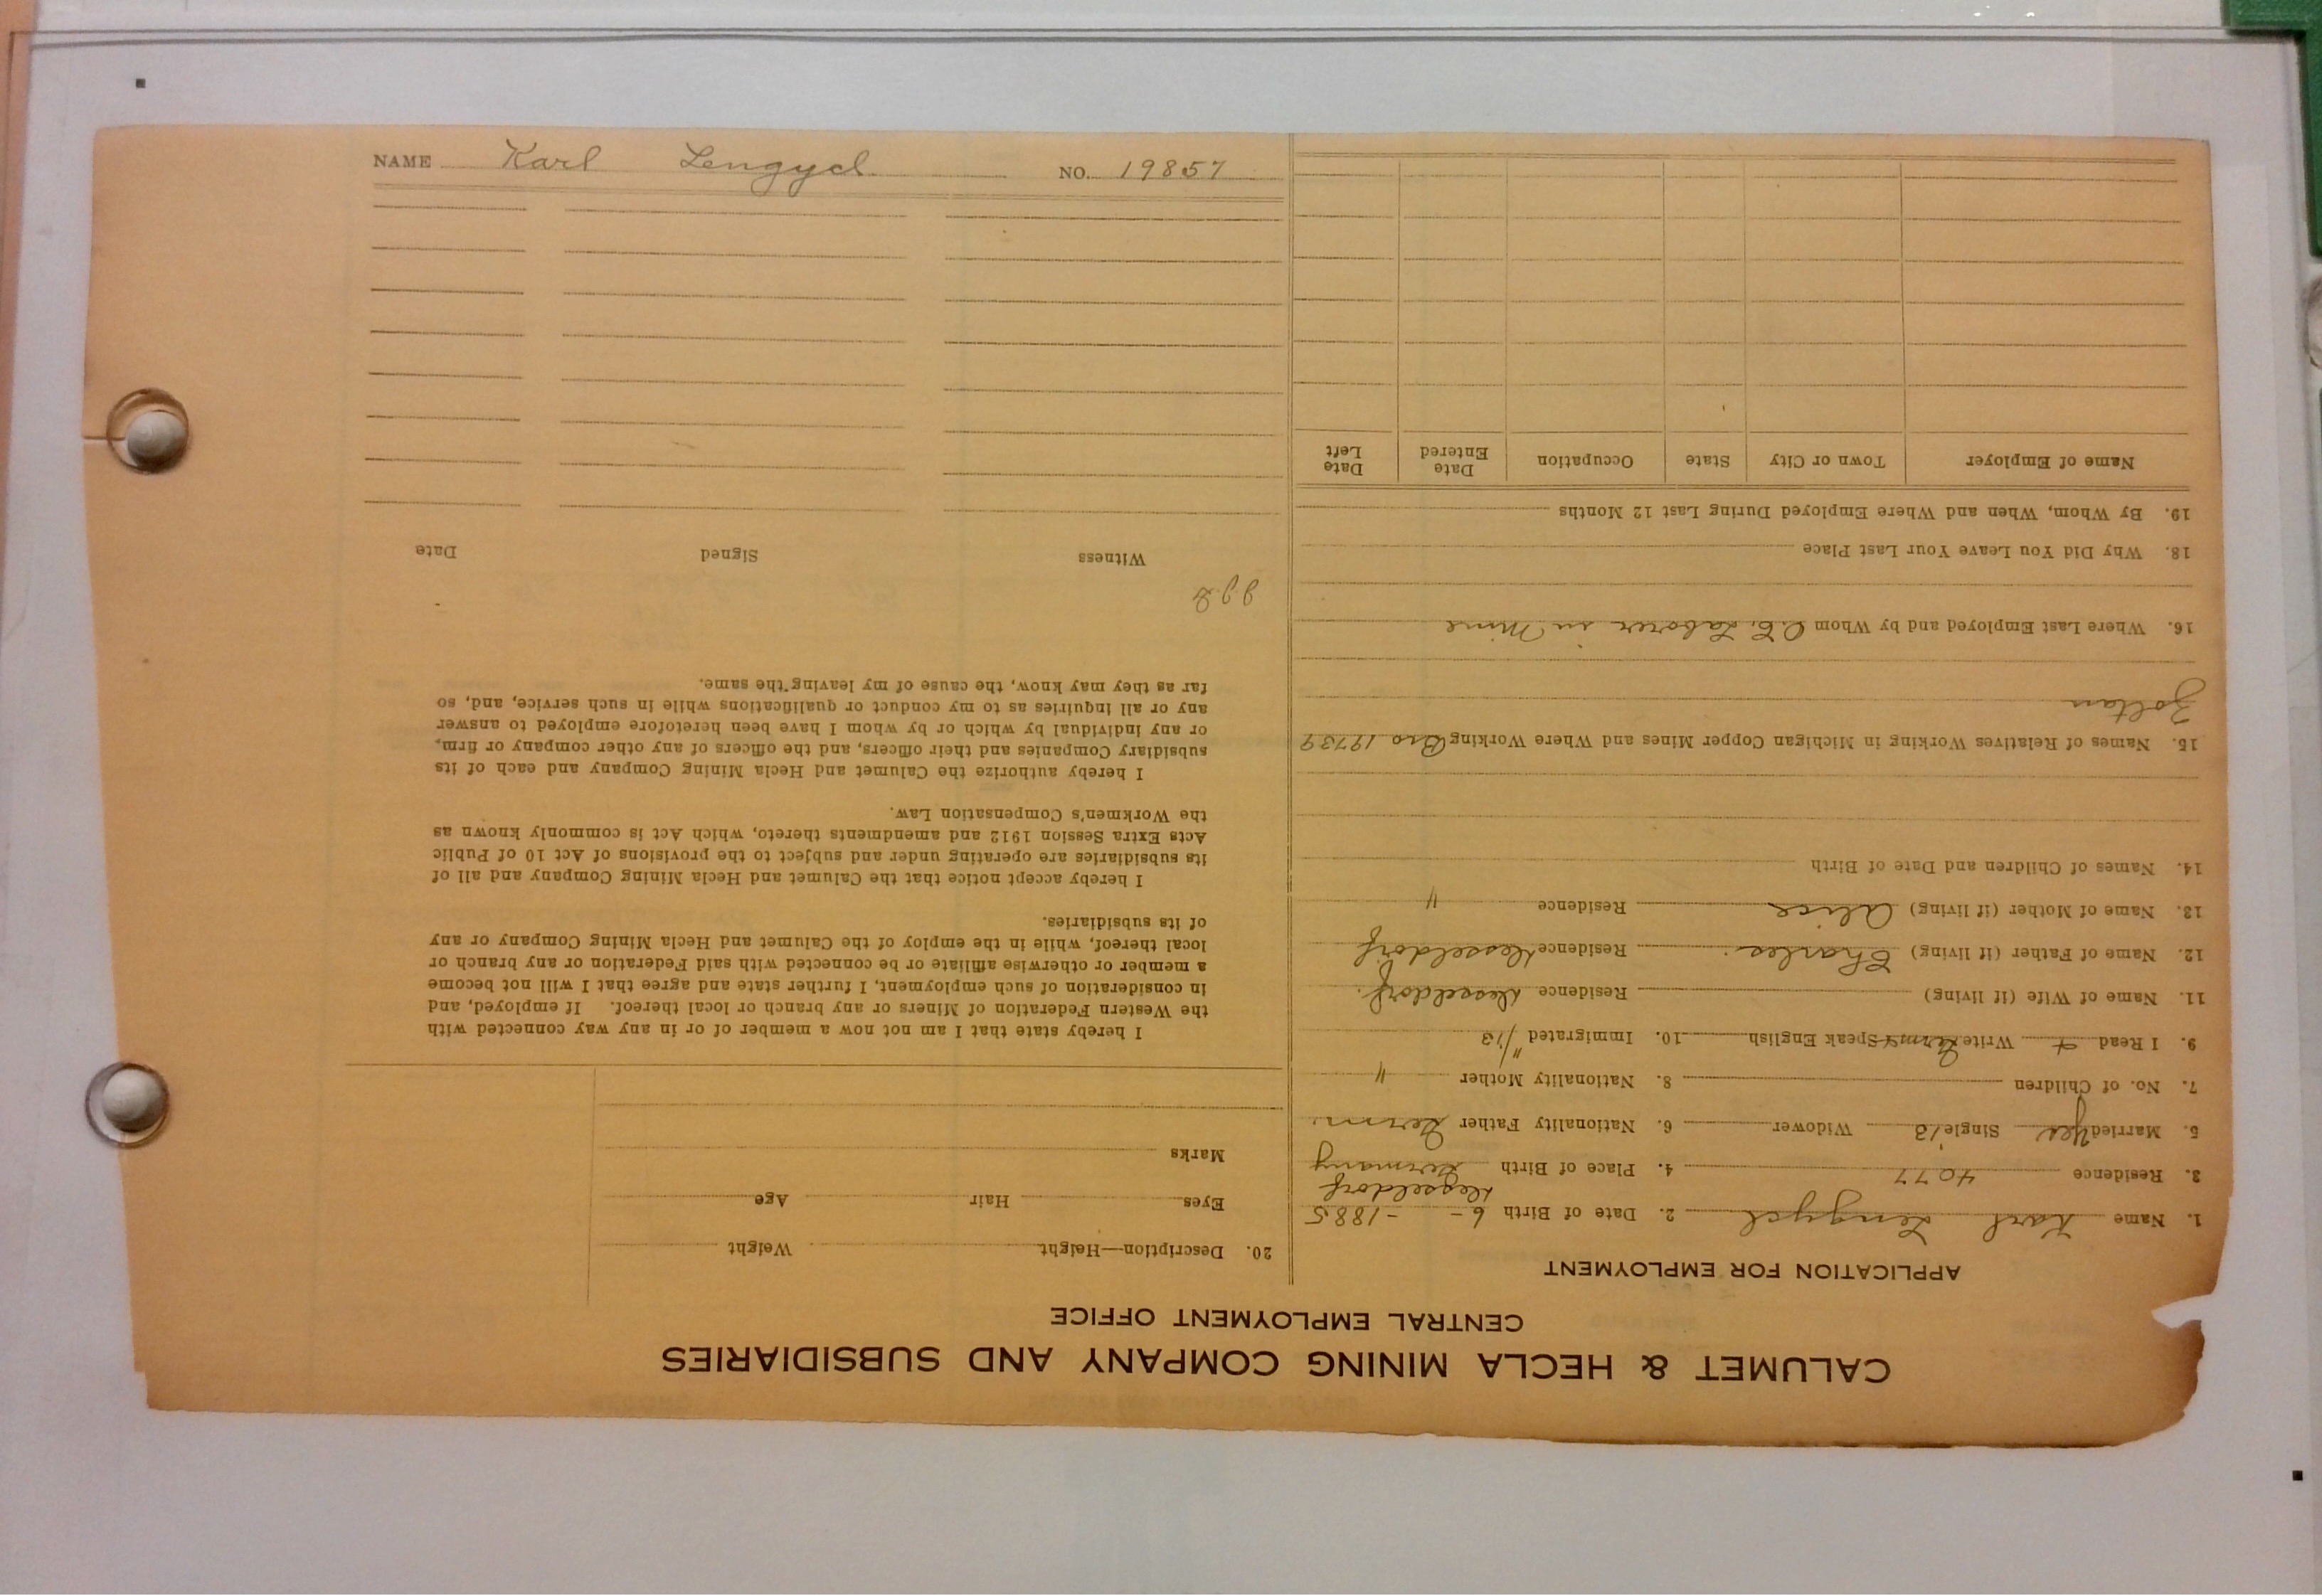 CALUMET & HECLA MINING COMPANY AND SUBSIDIARIES
CENTRAL EMPLOYMENT OFFICE
APPLICATION FOR EMPLOYMENT
1. Name Karl Lengyel 2. Date of Birth 6 - - 1885
3. Residence 4077 4. Place of Birth Germany
5. Married Yes Single '13 Widower 6. Nationality Father Germ.
7. No. of Children 8. Nationality Mother "
9. I Read + Write Speak English 10. Immigrated "/13
11. Name of Wife (if living) Residence
12. Name of Father (if living) Charles Residence
13. Name of Mother (if living) Alice Residence "
14. Names of Children and Date of Birth
15. Names of Relatives Working in Michigan Copper Mines and Where Working Bro 19739
Zoltan
16. Where Last Employed and by Whom Laborer in Mine
18. Why Did You Leave Your Last Place
19. By Whom, When and Where Employed During Last 12 Months
Name of Employer Town or City State Occupation Date Entered Date Left
20. Description—Height Weight
Eyes Hair Age
Marks
I hereby state that I am not now a member of or in any way connected with
the Western Federation of Miners or any branch or local thereof. If employed, and
in consideration of such employment, I further state and agree that I will not become
a member or otherwise affiliate or be connected with said Federation or any branch or
local thereof, while in the employ of the Calumet and Hecla Mining Company or any
of its subsidiaries.
I hereby accept notice that the Calumet and Hecla Mining Company and all of
its subsidiaries are operating under and subject to the provisions of Act 10 of Public
Acts Extra Session 1912 and amendments thereto, which Act is commonly known as
the Workmen's Compensation Law.
I hereby authorize the Calumet and Hecla Mining Company and each of its
subsidiary Companies and their officers, and the officers of any other company or firm,
or any individual by which or by whom I have been heretofore employed to answer
any or all inquiries as to my conduct or qualifications while in such service, and, so
far as they may know, the cause of my leaving the same.
Witness Signed Date
NAME Karl Lengyel NO. 19857